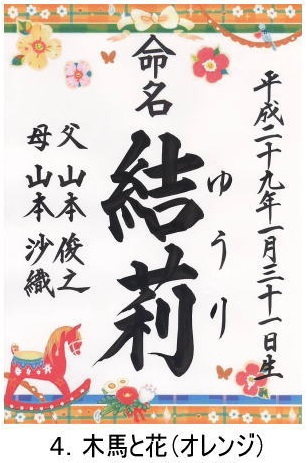 平成二十九年一月三十一日生
命名
結莉
ゆうり
父 山本 俊之
母 山本 沙織
4．木馬と花（オレンジ）